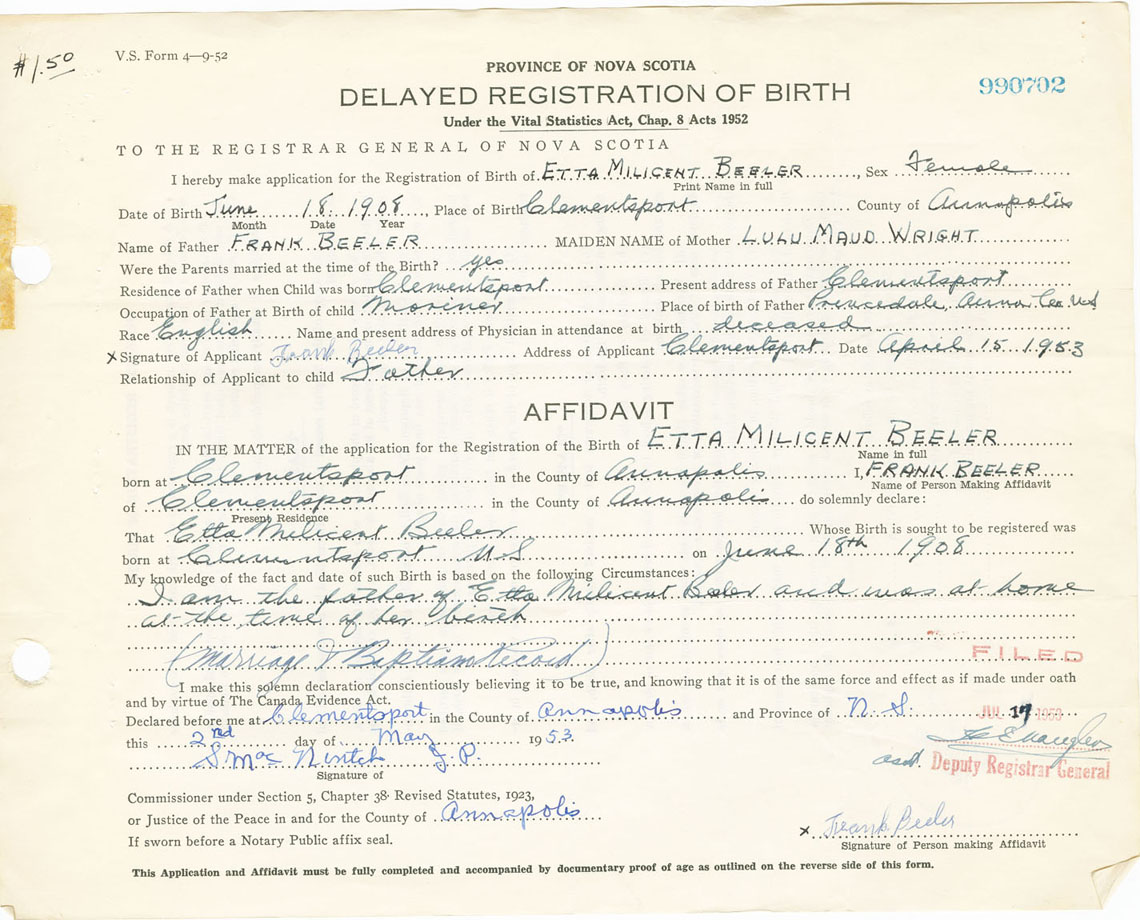 $1.50
V.S. Form 4—9-52
PROVINCE OF NOVA SCOTIA
990702
DELAYED REGISTRATION OF BIRTH
Under the Vital Statistics Act, Chap. 8 Acts 1952
TO THE REGISTRAR GENERAL OF NOVA SCOTIA
I hereby make application for the Registration of Birth of ETTA MILICENT BEELER, Sex Female
Print Name in full
Date of Birth June 18 1908, Place of Birth Clementsport County of Annapolis
Month Date Year
Name of Father FRANK BEELER MAIDEN NAME of Mother LULU MAUD WRIGHT
Were the Parents married at the time of the Birth? yes
Residence of Father when Child was born Clementsport Present address of Father Clementsport
Occupation of Father at Birth of child Mariner Place of birth of Father Princedale, Anna. Co. N.S
Race English Name and present address of Physician in attendance at birth deceased
x Signature of Applicant Frank Beeler Address of Applicant Clementsport Date April 15 1953
Relationship of Applicant to child Father
AFFIDAVIT
IN THE MATTER of the application for the Registration of the Birth of ETTA MILICENT BEELER
Name in full
born at Clementsport in the County of Annapolis I, FRANK BEELER
Name of Person Making Affidavit
of Clementsport in the County of Annapolis do solemnly declare:
Present Residence
That Etta Milicent Beeler Whose Birth is sought to be registered was
born at Clementsport N.S on June 18th 1908
My knowledge of the fact and date of such Birth is based on the following Circumstances:
I am the father of Etta Milicent Beeler and was at home
at the time of her birth
(Marriage & Baptism Record)
FILED
I make this solemn declaration conscientiously believing it to be true, and knowing that it is of the same force and effect as if made under oath
and by virtue of The Canada Evidence Act.
Declared before me at Clementsport in the County of Annapolis and Province of N.S.
JUL 17 1953
this 2nd day of May 1953
S Mac Nintch J.P.
Signature of
asst. Deputy Registrar General
Commissioner under Section 5, Chapter 38 Revised Statutes, 1923,
or Justice of the Peace in and for the County of Annapolis
If sworn before a Notary Public affix seal.
x Frank Beeler
Signature of Person making Affidavit
This Application and Affidavit must be fully completed and accompanied by documentary proof of age as outlined on the reverse side of this form.